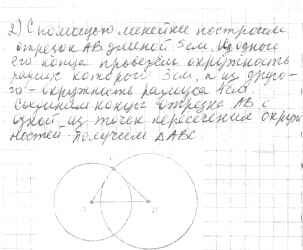 2) С помощью линейки построим
отрезок AB длиной 5см. Из одного
его конца проведём окружность
радиус которой 3см, а из друго-
го - окружность радиуса 4см.
Соединим концы отрезка AB с
одной из точек пересечения окруж
ностей - получаем ΔABC